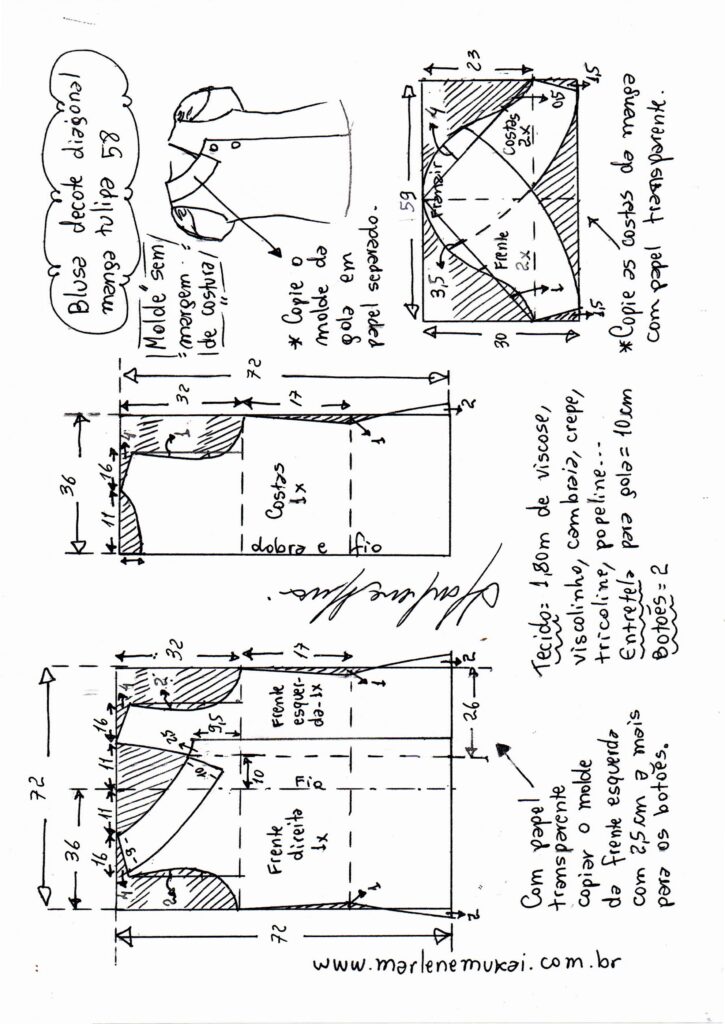 Blusa decote diagonal
manga tulipa 58
Molde sem
margem
de costura
* Copie o
molde da
gola em
papel separado.
72
36
36
16
11
11
16
4
4
2
2
5
10
25
9,5
10
32
17
72
26
1
1
2
2
Fio
Frente
direita
1x
Frente
esquer-
da-1x
36
11
16
4
1
32
17
72
1
2
Costas
1x
dobra e fio
59
23
30
4
3,5
05
1
1,5
1,5
Franzir
Frente
2x
Costas
2x
* Copie as costas da manga
com papel transparente.
Com papel
transparente
copiar o molde
da frente esquerda
com 2,5cm a mais
para os botões.
Tecido= 1,80m de viscose,
viscolinho, cambraia, crepe,
tricoline, popeline...
Entretela para gola=10cm
Botões=2
www.marlenemukai.com.br